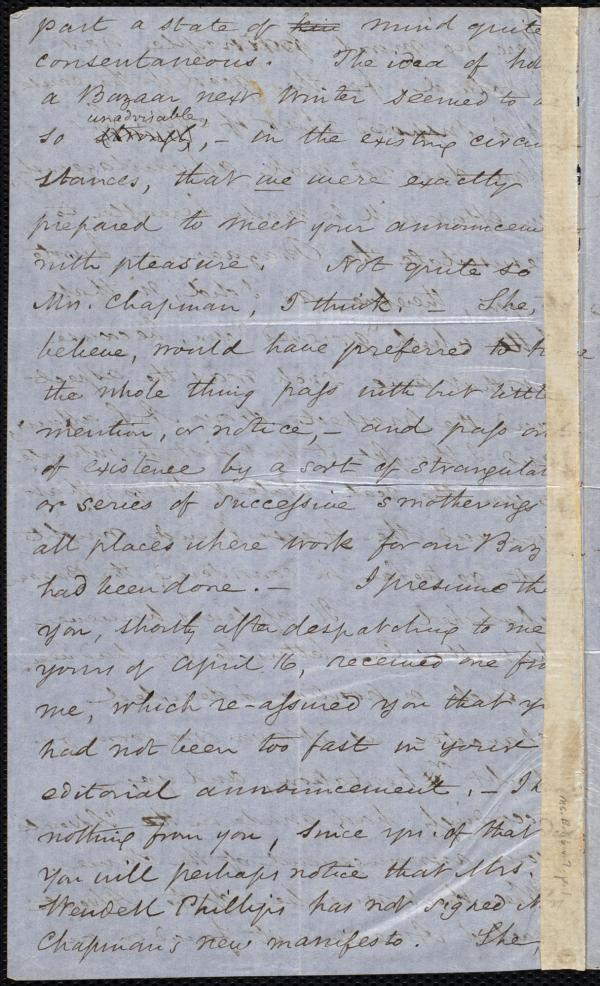 part a state of mind quite
consentaneous. The idea of ho
a Bazaar next Winter seemed to
unadvisable,
so , – in the existing circum
stances, that we were exactly
prepared to meet your announcem
with pleasure. Not quite so
Mrs. Chapman, I think. – She,
believe, would have preferred to
the whole thing pass with but littl
mention, or notice, – and pass
of existence by a sort of strangulat
or series of successive smotherings
all places where work for our Baz
had been done. – I presume th
you, shortly after despatching to me
yours of April 16, received one fro
me, which re-assured you that y
had not been too fast in your
editorial announcement. – I h
nothing from you, since yrs. of that
You will perhaps notice that Mrs.
Wendell Phillips has not signed M
Chapman's new manifesto. She,